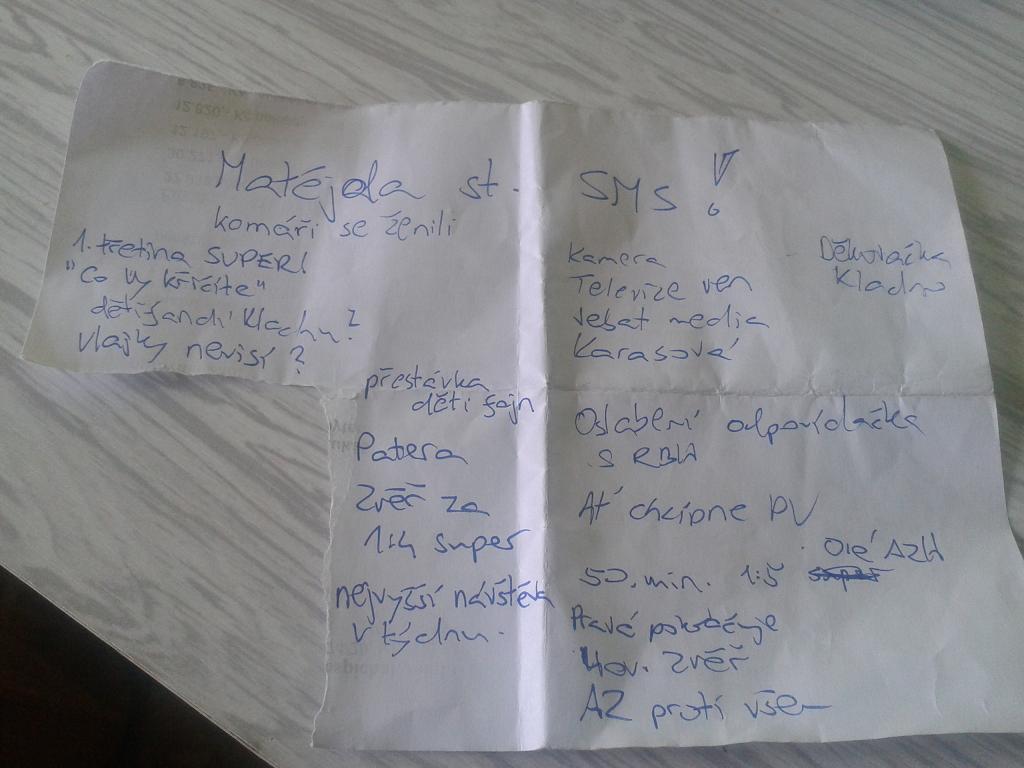 Matějda st. SMS!
komáři se ženili
1. třetina SUPER!
"Co vy křičíte"
děti fandí Kladnu?
vlajky nevisí?
přestávka
děti fajn
Patera
Zvěř za
1:4 super
nejvyšší návštěva
v týdnu.
Kamera
Televize ven
sebat media
Karasová
Děkovačka
Kladno
Oslabení odpovídačka
s RBW
Ať chcípne PV
50. min. 1:5 Olé AZH
Havá pokračuje
Hov. zvěř
AZ proti všem